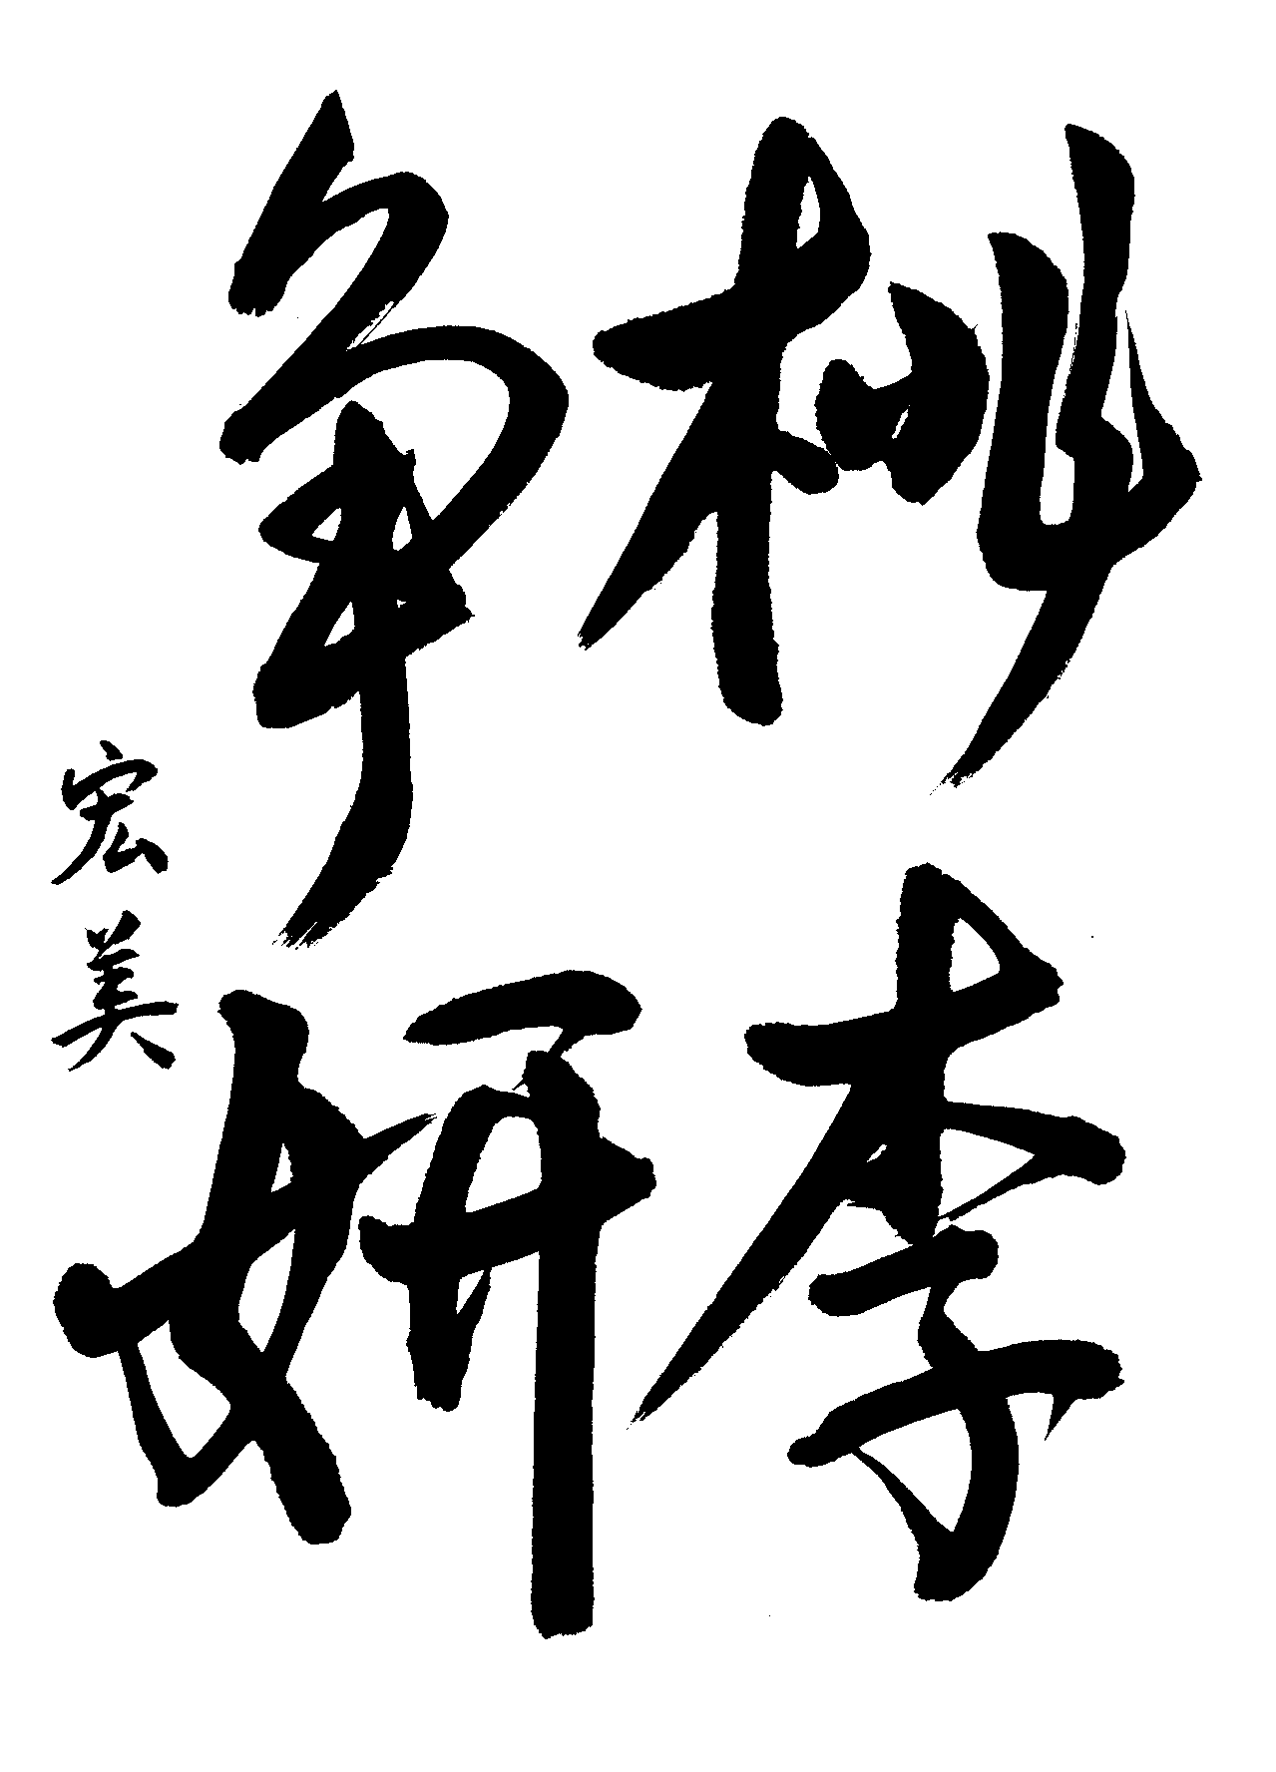 桃李
争妍
宏美